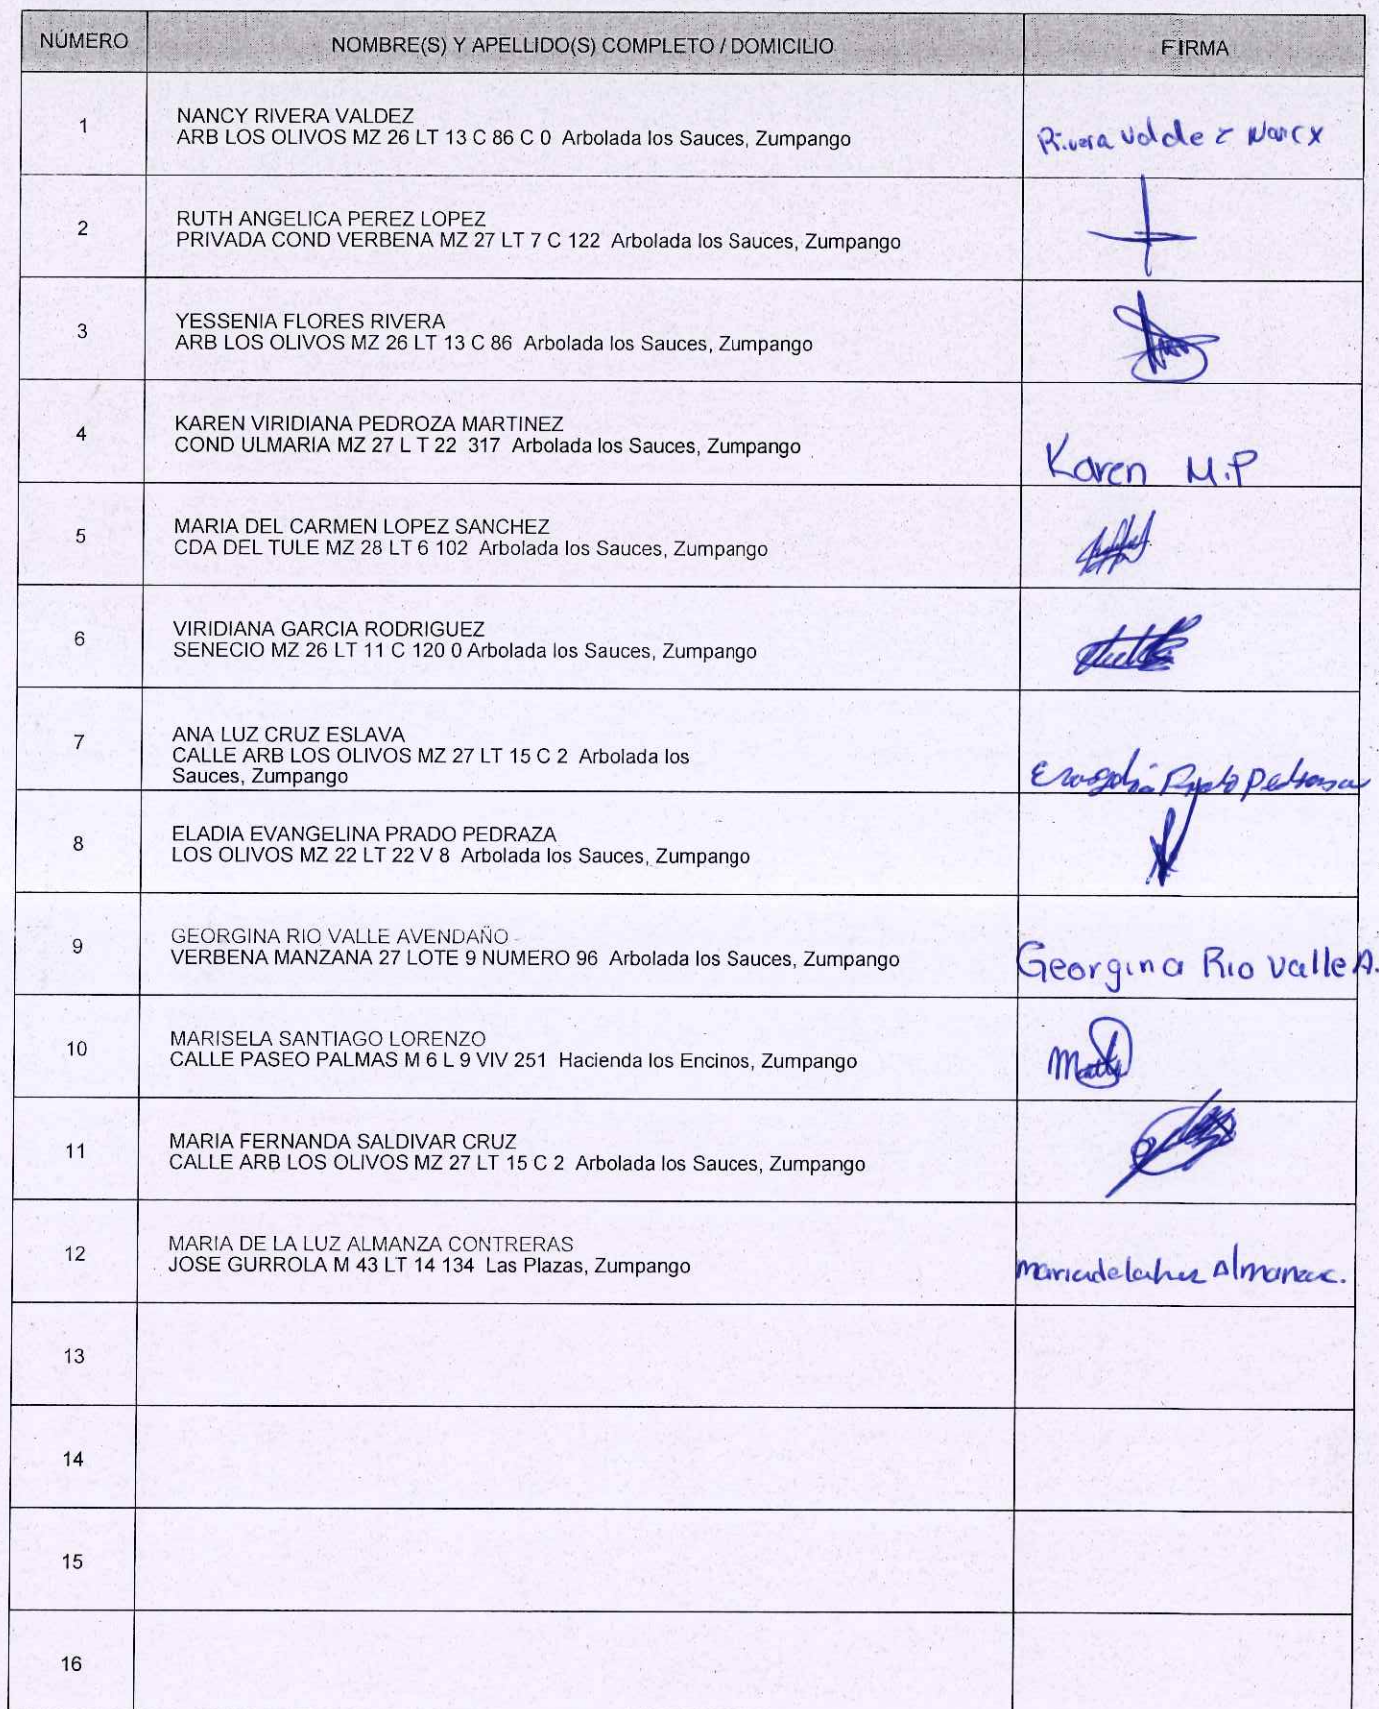 NÚMERO NOMBRE(S) Y APELLIDO(S) COMPLETO / DOMICILIO FIRMA
1 NANCY RIVERA VALDEZ
ARB LOS OLIVOS MZ 26 LT 13 C 86 C 0 Arbolada los Sauces, Zumpango
Rivera Valdez Nancy
2 RUTH ANGELICA PEREZ LOPEZ
PRIVADA COND VERBENA MZ 27 LT 7 C 122 Arbolada los Sauces, Zumpango
3 YESSENIA FLORES RIVERA
ARB LOS OLIVOS MZ 26 LT 13 C 86 Arbolada los Sauces, Zumpango
4 KAREN VIRIDIANA PEDROZA MARTINEZ
COND ULMARIA MZ 27 L T 22 317 Arbolada los Sauces, Zumpango
Karen M.P
5 MARIA DEL CARMEN LOPEZ SANCHEZ
CDA DEL TULE MZ 28 LT 6 102 Arbolada los Sauces, Zumpango
6 VIRIDIANA GARCIA RODRIGUEZ
SENECIO MZ 26 LT 11 C 120 0 Arbolada los Sauces, Zumpango
7 ANA LUZ CRUZ ESLAVA
CALLE ARB LOS OLIVOS MZ 27 LT 15 C 2 Arbolada los
Sauces, Zumpango
8 ELADIA EVANGELINA PRADO PEDRAZA
LOS OLIVOS MZ 22 LT 22 V 8 Arbolada los Sauces, Zumpango
9 GEORGINA RIO VALLE AVENDAÑO
VERBENA MANZANA 27 LOTE 9 NUMERO 96 Arbolada los Sauces, Zumpango
Georgina Rio Valle A.
10 MARISELA SANTIAGO LORENZO
CALLE PASEO PALMAS M 6 L 9 VIV 251 Hacienda los Encinos, Zumpango
11 MARIA FERNANDA SALDIVAR CRUZ
CALLE ARB LOS OLIVOS MZ 27 LT 15 C 2 Arbolada los Sauces, Zumpango
12 MARIA DE LA LUZ ALMANZA CONTRERAS
JOSE GURROLA M 43 LT 14 134 Las Plazas, Zumpango
13
14
15
16